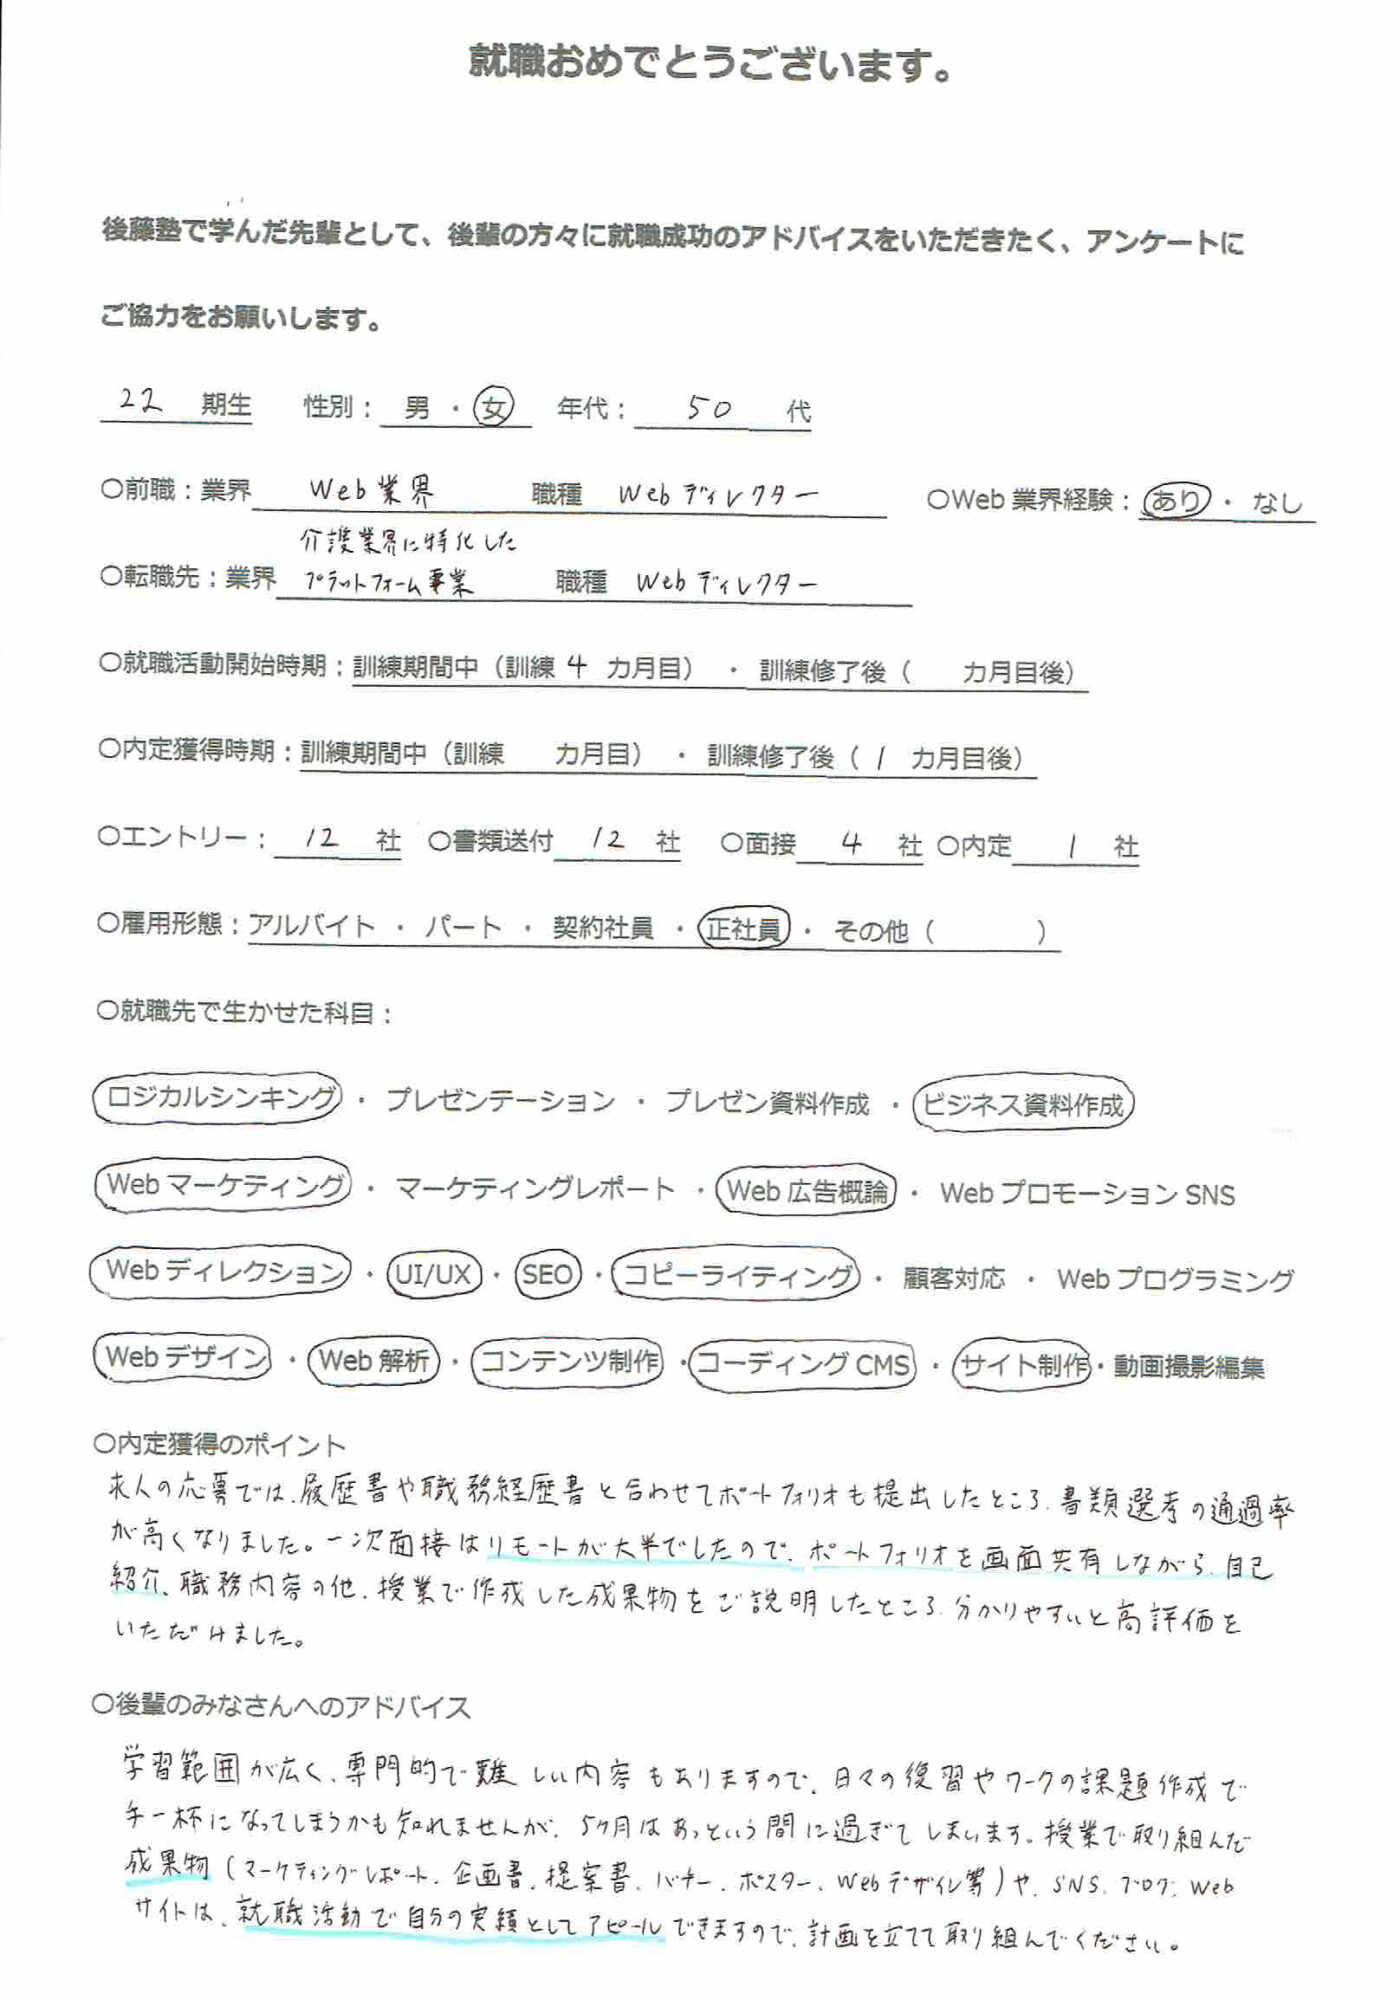 就職おめでとうございます。
後藤塾で学んだ先輩として、後輩の方々に就職成功のアドバイスをいただきたく、アンケートに
ご協力をお願いします。
22 期生 性別： 男 ・ 女 年代： 50 代
○前職：業界 Web業界 職種 Webディレクター ○Web 業界経験：あり・ なし
介護業界に特化した
○転職先：業界 プラットフォーム事業 職種 Webディレクター
○就職活動開始時期：訓練期間中（訓練 4 カ月目） ・ 訓練修了後（ カ月目後）
○内定獲得時期：訓練期間中（訓練 カ月目） ・ 訓練修了後（ 1 カ月目後）
○エントリー： 12 社 ○書類送付 12 社 ○面接 4 社 ○内定 1 社
○雇用形態：アルバイト ・ パート ・ 契約社員 ・ 正社員 ・ その他（ ）
○就職先で生かせた科目：
ロジカルシンキング ・ プレゼンテーション ・ プレゼン資料作成 ・ ビジネス資料作成
Web マーケティング ・ マーケティングレポート ・ Web 広告概論 ・ Web プロモーション SNS
Web ディレクション ・ UI/UX ・ SEO ・ コピーライティング ・ 顧客対応 ・ Web プログラミング
Web デザイン ・ Web 解析 ・ コンテンツ制作 ・ コーディング CMS ・ サイト制作 ・ 動画撮影編集
○内定獲得のポイント
求人の応募では、履歴書や職務経歴書と合わせてポートフォリオも提出したところ、書類選考の通過率
が高くなりました。一次面接はリモートが大半でしたので、ポートフォリオを画面共有しながら、自己
紹介、職務内容の他、授業で作成した成果物をご説明したところ、分かりやすいと高評価を
いただけました。
○後輩のみなさんへのアドバイス
学習範囲が広く、専門的で難しい内容もありますので、日々の復習やワークの課題作成で
手一杯になってしまうかも知れませんが、5ヶ月はあっという間に過ぎてしまいます。授業で取り組んだ
成果物（マーケティングレポート、企画書、提案書、バナー、ポスター、Webデザイン等）や、SNS、ブログ、Web
サイトは、就職活動で自分の実績としてアピールできますので、計画を立てて取り組んでください。